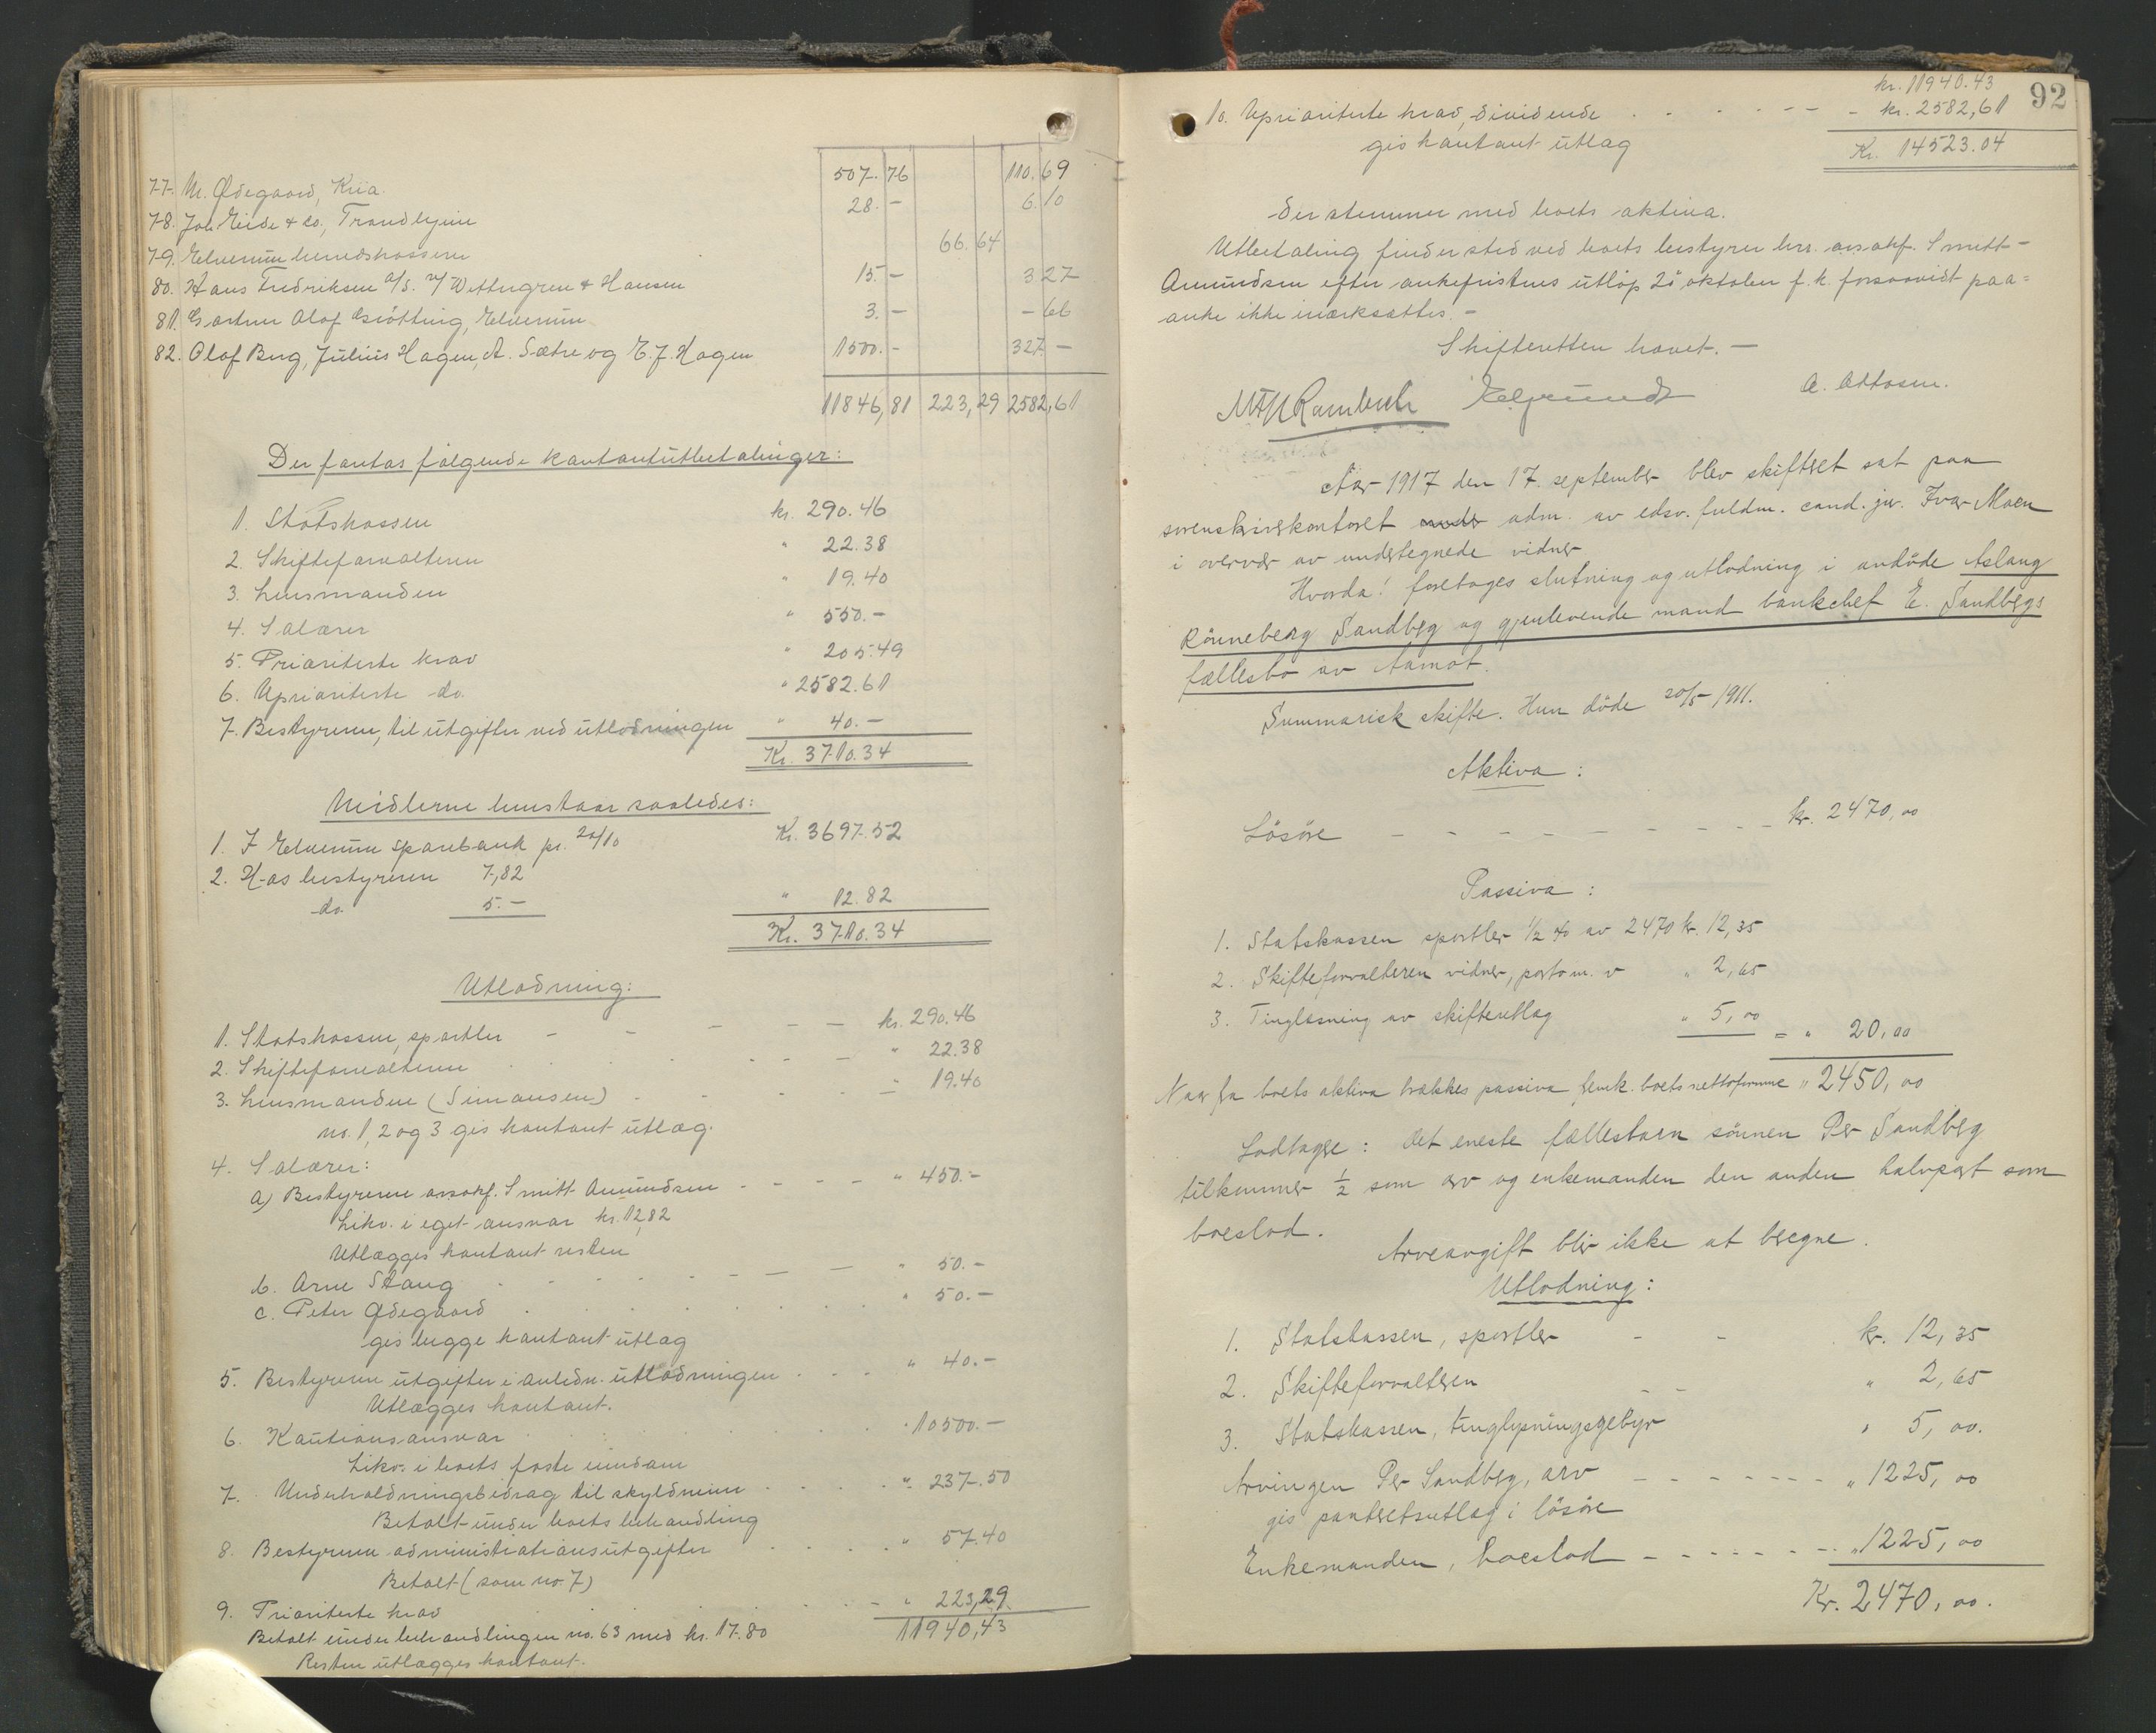 77. M. Ødegaard, Kiia. 507.76 110.69
78. Joh Meide & Co., Trondhjem 28.- 6.10
79. Elverum herredskasserer 66.64
80. Hans Fredriksen a/s. v/ Wettergren & Hansen 15.- 3 27
81. Gartner Olaf Grötting, Elverum 3.- - 66
82. Olaf Berg, Julius Hagen, A. Sætre og E. J. Hagen 1500.- 327.-
11846,81 223,29 2582,61
Der fantas følgende kontantutbetalinger:
1. Statskassen kr. 290.46
2. Skifteforvalteren " 22.38
3. Lensmanden " 19.40
4. Salærer " 550.-
5. Prioriterte krav " 205.49
6. Uprioriterte do. " 2582.61
7. Bestyreren, til utgifter ved utlodningen " 40.-
Kr. 3710.34
Midlerne henstaar saaledes:
1. I Elverum sparebank pr. 20/10 Kr. 3697.52
2. Hos bestyreren 7,82
do. 5.- " 12.82
Kr. 3710.34
Utlodning:
1. Statskassen, sportler - - - - - kr. 290.46
2. Skifteforvalteren " 22.38
3. Lensmanden (Simonsen) " 19.40
no. 1, 2 og 3 gis kontant utlæg.
4. Salærer:
a) Bestyreren o.r.sakf. Smitt Amundsen - - - - " 450.-
Likv. i eget ansvar kr. 12,82
Utlægges kontant resten
b. Arne Stang " 50.-
c. Peter Ødegaard " 50.-
gis begge kontant utlag
5. Bestyreren utgifter i anledn. utlodningen " 40.-
Utlægges kontant.
6. Kautionsansvar " 10500.-
Likv. i boets faste eiendom
7. Underholdningsbidrag til skyldneren " 237.50
Betalt under boets behandling
8. Bestyreren administrationsutgifter " 57.40
Betalt (som no. 7)
9. Prioriterte krav " 223,29
Betalt under behandlingen no. 63 med kr. 17.80 11940,43
Resten utlægges kontant.
92
kr. 11940.43
10. Uprioriterte krav, dividende - - - kr. 2582,61
gis kontant utlag Kr. 14523.04
Der stemmer med boets aktiva.
Utbetaling finder sted ved boets bestyrer hrr. o.r.sakf. Smitt-
Amundsen efter ankefristens utløp 20 oktober f. k. forsaavidt paa=
anke ikke iverksættes. -
Skifteretten hævet. -
A. Ottosen.
Aar 1917 den 17. september blev skifteret sat paa
sorenskriverkontoret under adm. av edsv. fuldm. cand. jur. Ivar Moen
i overvær av undertegnede vidner
Hvorda! foretages slutning og utlodning i avdöde Aslaug
Rönneberg Sandberg og gjenlevende mand bankchef E. Sandbergs
fællesbo av Aamot.
Summarisk skifte. Hun döde 20/5 1911.
Aktiva:
Lösöre - - - - - - - - - kr. 2470,00
Passiva:
1. Statskassen sportler 1/2 % av 2470 kr. 12,35
2. Skifteforvalteren vidner, porto m. v " 2,65
3. Tinglæsning av skifteutlæg " 5,00 = " 20,00
Naar fra boets aktiva trækkes passiva fremk. boets nettoformue " 2450,00
Lodtagere: Det eneste fællesbarn sönnen Per Sandberg
tilkommer 1/2 som arv og enkemanden den anden halvpart som
boeslod.
Arveavgift blir ikke at beregne.
Utlodning:
1. Statskassen, sportler - - kr. 12,35
2. Skifteforvalteren - - " 2,65
3. Statskassen, tinglysningsgebyr " 5,00.
Arvingen Per Sandberg, arv - - - - - - - " 1225,00
gis panteretsutlæg i lösöre
Enkemanden, boeslod - - - - - - - " 1225,00
Kr. 2470,00.